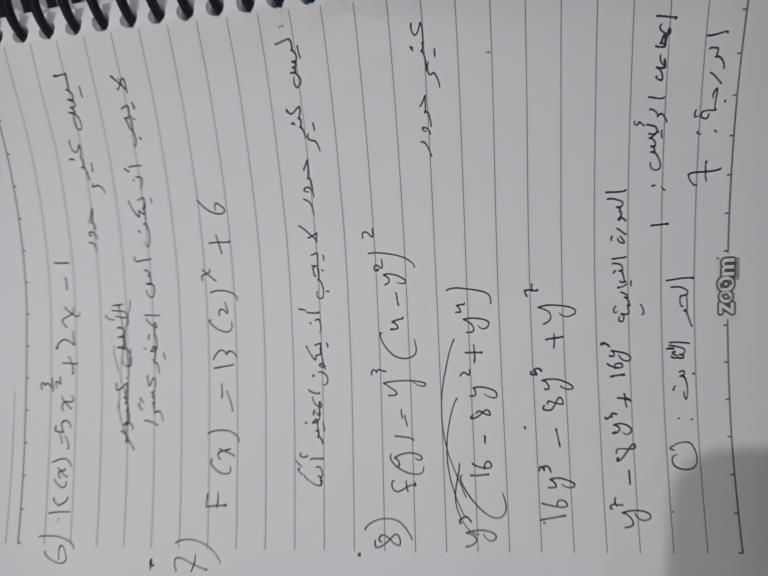 6) K(x) = 5x^(3/2) + 2x - 1
ليس كثير حدود
لا يجب ان يكون أس المتغير كسرًا
7) F(x) = 13(2)^x + 6
ليس كثير حدود لا يجب ان يكون المتغير أسًا
8) f(y) = y³(4 - y²)²
كثير حدود
y³(16 - 8y² + y⁴)
16y³ - 8y⁵ + y⁷
y⁷ - 8y⁵ + 16y³ الصورة القياسية
المعامل الرئيس: 1
الدرجة: 7
الحد الثابت: 0
zoom